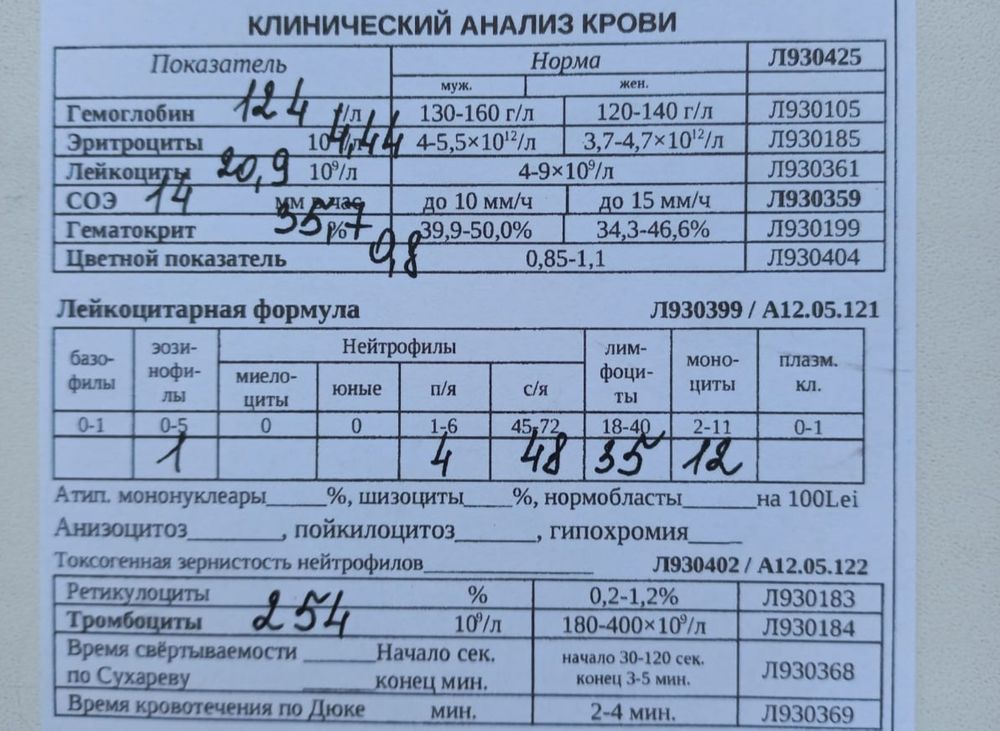 КЛИНИЧЕСКИЙ АНАЛИЗ КРОВИ
Показатель Норма Л930425
муж. жен.
Гемоглобин 124 г/л 130-160 г/л 120-140 г/л Л930105
Эритроциты 4,44 4-5,5×10¹²/л 3,7-4,7×10¹²/л Л930185
Лейкоциты 20,9 10⁹/л 4-9×10⁹/л Л930361
СОЭ 14 мм в час до 10 мм/ч до 15 мм/ч Л930359
Гематокрит 35,7 % 39,9-50,0% 34,3-46,6% Л930199
Цветной показатель 0,8 0,85-1,1 Л930404
Лейкоцитарная формула Л930399 / А12.05.121
базо-
филы
эози-
нофи-
лы
Нейтрофилы
миело-
циты
юные
п/я
с/я
лим-
фоци-
ты
моно-
циты
плазм.
кл.
0-1 0-5 0 0 1-6 45-72 18-40 2-11 0-1
1 4 48 35 12
Атип. мононуклеары_____%, шизоциты____%, нормобласты______на 100Lei
Анизоцитоз________, пойкилоцитоз_______, гипохромия____
Токсогенная зернистость нейтрофилов______________ Л930402 / А12.05.122
Ретикулоциты % 0,2-1,2% Л930183
Тромбоциты 254 10⁹/л 180-400×10⁹/л Л930184
Время свёртываемости ______Начало сек. начало 30-120 сек. Л930368
по Сухареву ______конец мин. конец 3-5 мин.
Время кровотечения по Дюке мин. 2-4 мин. Л930369